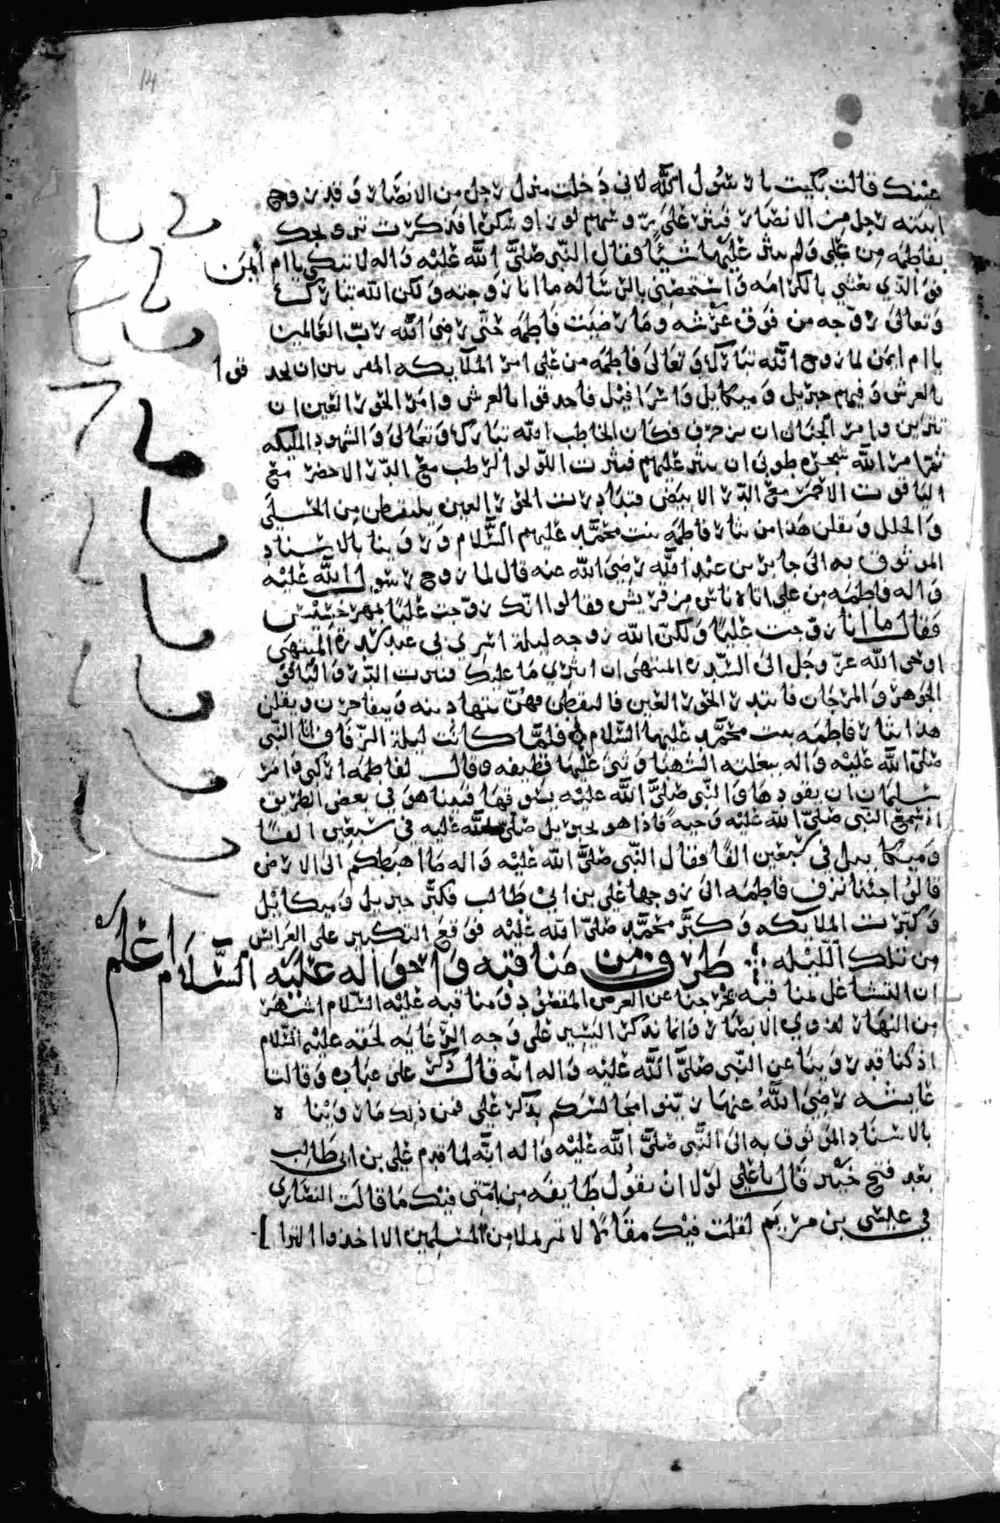 عينك قالت بكيت يا رسول الله لاني دخلت منزل رجل من الانصار وقد زوج
ابنته رجل من الانصار فنثر على رؤسهم لوزا وسكرا فذكرت تزويجك
بفاطمة من علي ولم ينثر عليها شيئا فقال النبي صلى الله عليه واله لا تبكي يا ام أيمن
فو الذي بعثني بالكرامه واستخصني بالرساله ما انا زوجته ولكن الله تبارك
وتعالى زوجه من فوق عرشه وما رضيت فاطمه حتى رضي الله رب العالمين
يا ام ايمن لما زوج الله تبارك وتعالى فاطمه من علي امر الملايكه المقربين ان يحد قوا
بالعرش وفيهم جبريل وميكايل واسرافيل فاحدقوا بالعرش وامر الحور العين ان
تتزين وامر الجنان ان تزخرف فكان الخاطب الله تبارك وتعالى والشهود المليكه
ثم امر الله شجره طوبى ان ينثر عليهم فنثرت اللولو الرطب مع الدر الاخضر مع
الياقوت الاحمر مع الدر الابيض فتبادرت الحور العين يلتقطن من الحلي
والحلل ويقلن هذا من نثار فاطمه بنت محمد عليهم السلام وروينا بالاسناد
الموثوق به الى جابر بن عبد الله رضي الله عنه قال لما زوج رسول الله عليه
واله فاطمه من علي اتاه ناس من قريش وقالوا انك زوجت عليا بمهر خسيس
فقال ما انا زوجت عليا ولكن الله زوجه ليلة اسري بي عند سدرة المنتهى
اوحى الله عز وجل الى السدرة المنتهى ان انثري ما عليك فنثرت الدر والياقوت
الجوهر والمرجان فابتدر الحور العين فالتقطن فهن يتهادينه ويتفاخرن ويقلن
هذا نثار فاطمه بنت محمد عليها السلام فلما كانت ليلة الزفاف اتا النبي
صلى الله عليه واله ببغلته الشهبا وثنى عليها قطيفه وقال لفاطمه اركبي وامر
سلمان ان يقودها والنبي صلى الله عليه يسوقها فبينا هو في بعض الطريق
اذ سمع النبي صلى الله عليه وجبه فاذا هو بجبريل صلى الله عليه في سبعين الفا
وميكاييل في سبعين الفا فقال النبي صلى الله عليه واله ما اهبطكم الى الارض
قالوا جئنا نزف فاطمه الى زوجها علي بن ابي طالب فكبر جبريل وميكايل
وكبرت الملايكه وكبر محمد صلى الله عليه فوقع التكبير على العرايس
من تلك الليله طرف من مناقبه واحواله عليه السلام اعلم
ان التشاغل بمناقبه يخرجنا عن الغرض المقصود ومناقبه عليه السلام اشهر
من النهار لذوي الابصار وانما نذكر اليسير على وجه الرعايه لحقه عليه السلام
اذ كنا قد روينا عن النبي صلى الله عليه واله انه قال ذكر علي عباده وقالت
عايشه رضي الله عنها زينوا مجالسكم بذكر علي فمن ذلك ما رويناه
بالاسناد الموثوق به الى النبي صلى الله عليه واله انه لما قدم علي بن ابي طالب
بعد فتح خيبر قال يا علي لولا ان يقول طايفه من امتي فيك ما قالت النصارى
في عيسى بن مريم لقلت فيك مقالا لا تمر بملا من المسلمين الا اخذوا الترا